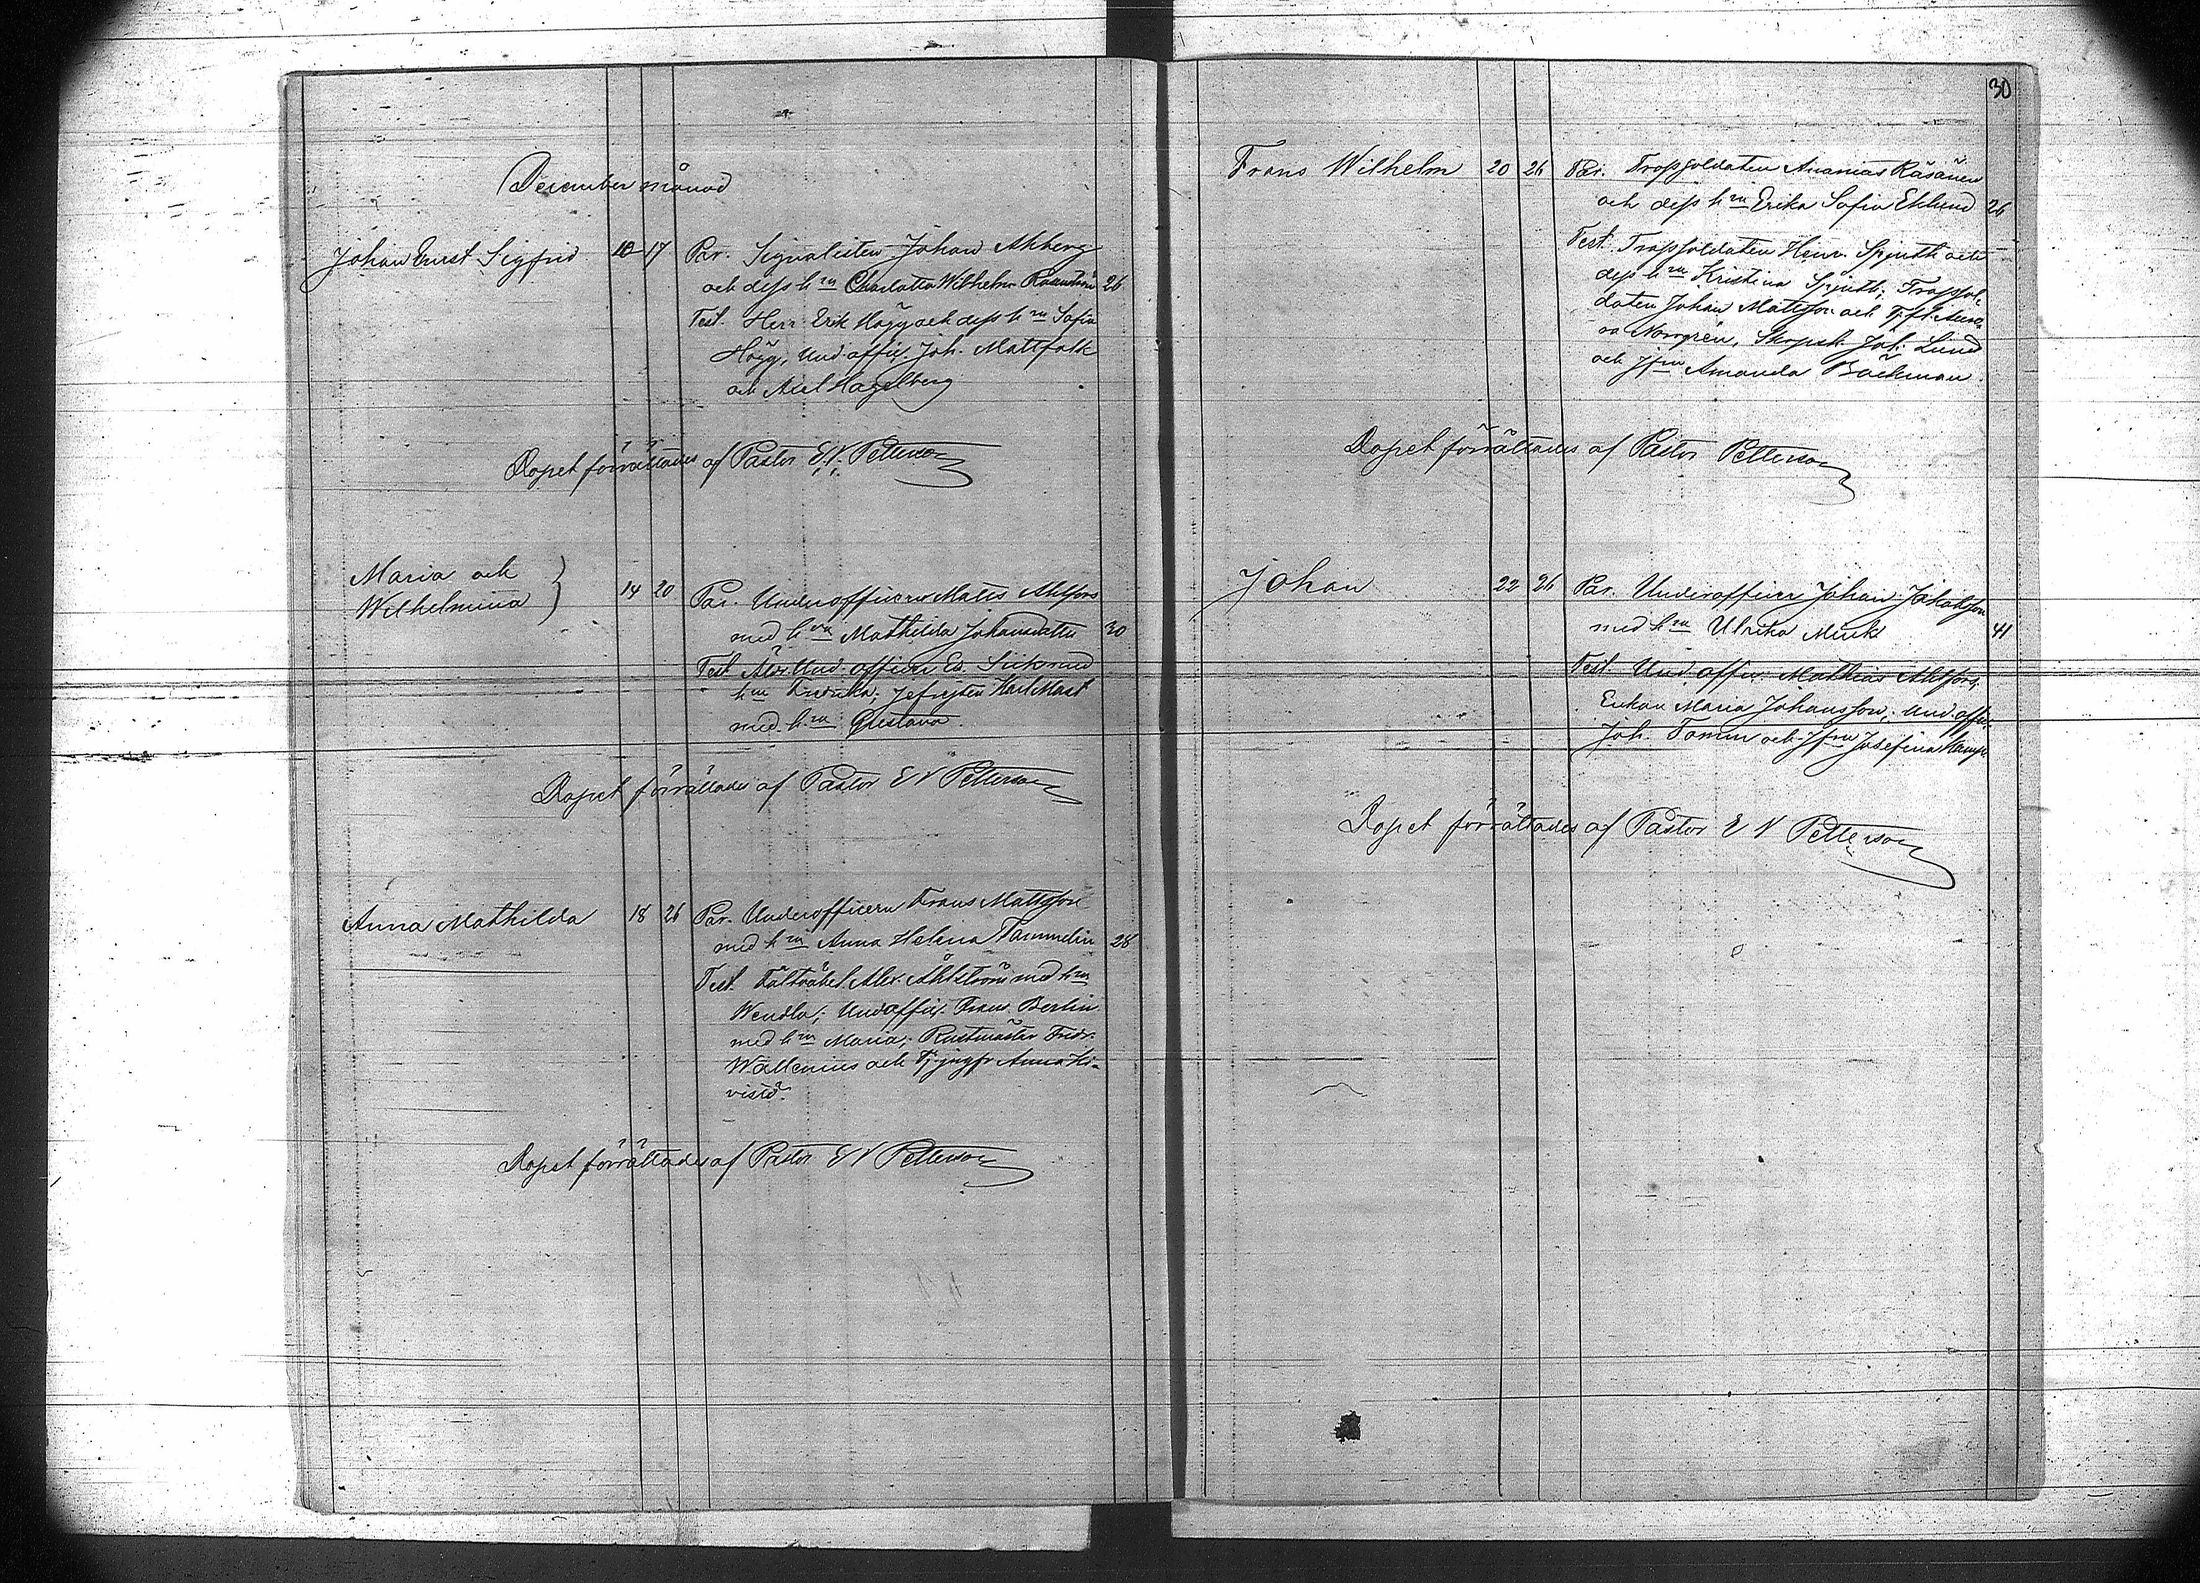 December månad
Johan Ernst Sigfrid 10 17 Par. Signalisten Johan Ahberg
och dess h:ru Charlotta Wilhelm. 26
Test. Herr Erik Högg och dess h:ru Sofia
Högg, Und.offic. Joh. Mattfolk
och Axel Hagelberg
Dopet förrättades af Pastor E. N. Petterson
Maria och
Wilhelmina } 14 20 Par. Underofficern Matts Ahlfors
med h:ru Mathilda Johansdotter 30
Test. Und. officer
h:ru Fredrika. Jefrejten Karl Mast
med h:ru Gustava
Dopet förrättades af Pastor E N Petterson
Anna Mathilda 18 26 Par. Underofficern Frans Mattsson
med h:ru Anna Helena Tammelin 28
Test. Fältväbel Alex. Åhlström med h:ru
Wendla; Und.offic. Frans Berlin
med h:ru Maria; Rustmästar Fredr.
Wallenius och Tj. jungfr Anna Ki-
visid.
Dopet förrättades af Pastor E N Petterson
30
Frans Wilhelm 20 26 Par. Trossoldaten Ananias Räsänen
och dess h:ru Erika Sofia Eklund 26
Test. Trossoldaten Henr. Spjuth och
dess h:ru Kristina Spjuth; Trossol-
daten Johan Mattsson och Tj. fl. Auro-
ra Norrgrén, Joh. Lund
och Jfru Amanda Bäckman.
Dopet förrättades af Pastor Petterson
Johan 22 26 Par. Underofficer Johan Jakobsson
med h:ru Ulrika Mink 41
Test. Und. offic. Mathias Ahlfors,
Enkan Maria Johansson; Und.offic.
Joh. Tomin och Jfru Josefina
Dopet förrättades af Pastor E N Petterson